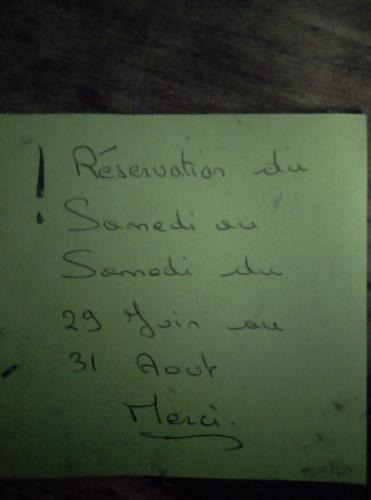 ! Réservation du
Samedi au
Samedi du
29 Juin au
31 Aout
Merci.